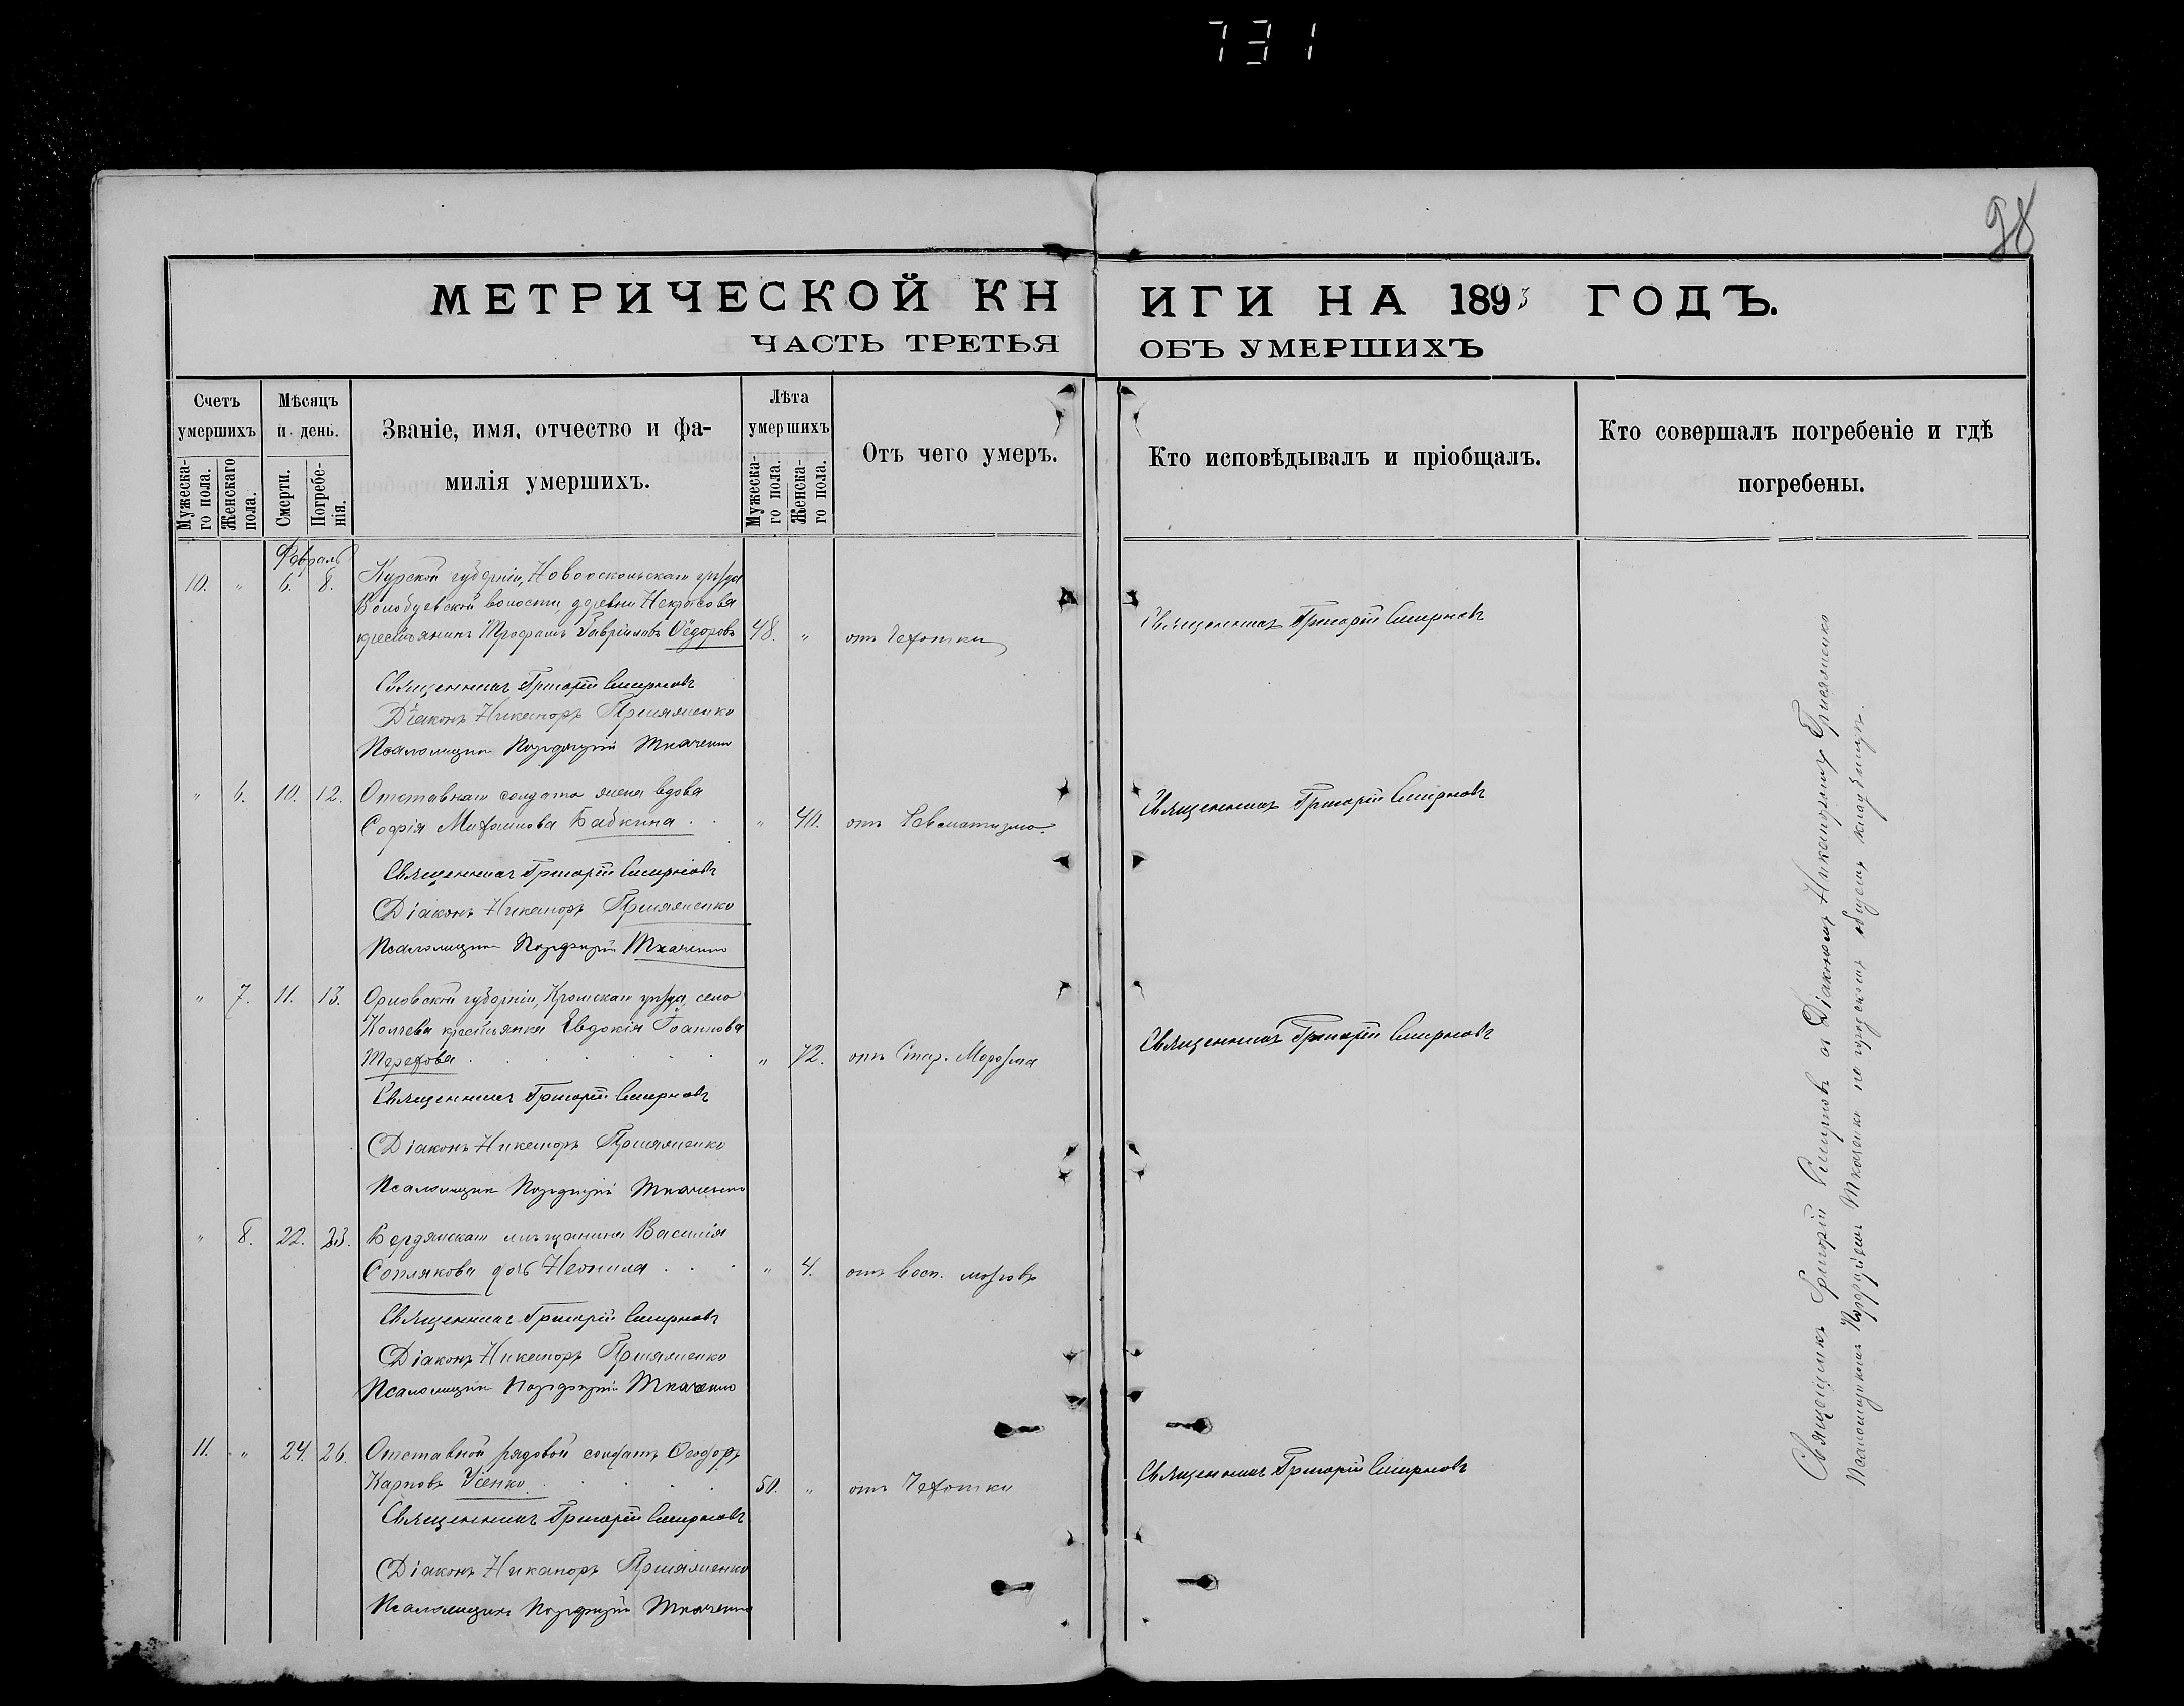 731
98
МЕТРИЧЕСКОЙ КНИГИ НА 1893 ГОДЪ.
ЧАСТЬ ТРЕТЬЯ ОБЪ УМЕРШИХЪ
Счетъ умершихъ
Мужеска-го пола.
Женскаго пола.
Мѣсяцъ и день.
Смерти.
Погребе-нія.
Званіе, имя, отчество и фа-
милія умершихъ.
Лѣта умершихъ
Мужеска-го пола.
Женска-го пола.
Отъ чего умеръ.
Кто исповѣдывалъ и пріобщалъ.
Кто совершалъ погребеніе и гдѣ
погребены.
Февраль
10. " 6. 8. Курской губерніи, Новооскольскаго уѣзда
Волобуевской волости, деревни Некрасова
крестьянинъ Трофимъ Гавріиловъ Ѳедоровъ 48. " отъ Чахотки Священникъ Григорій Смирновъ
Священникъ Григорій Смирновъ
Діаконъ Никаноръ
Псаломщикъ Порфирій Ткаченко
" 6. 10. 12. Отставнаго солдата жена вдова
Софія Михайлова Бабкина " 40. отъ Ревматизма. Священникъ Григорій Смирновъ
Священникъ Григорій Смирновъ
Діаконъ Никаноръ
Псаломщикъ Порфирій Ткаченко
" 7. 11. 13. Орловской губерніи, Кромскаго уѣзда, село
крестьянка Евдокія Іоаннова
Терехова " 72. отъ Стар. Священникъ Григорій Смирновъ
Священникъ Григорій Смирновъ
Діаконъ Никаноръ
Псаломщикъ Порфирій Ткаченко
" 8. 22. 23. Бердянскаго мѣщанина Василія
Соплякова дочь Неонила " 4. отъ Восп. мозговъ
Священникъ Григорій Смирновъ
Діаконъ Никаноръ
Псаломщикъ Порфирій Ткаченко
11. " 24. 26. Отставной рядовой солдатъ Ѳеодоръ
Карповъ Усенко 50. " отъ Чахотки Священникъ Григорій Смирновъ
Священникъ Григорій Смирновъ
Діаконъ Никаноръ
Псаломщикъ Порфирій Ткаченко
Священникъ Григорій Смирновъ съ Діакономъ Никаноромъ
Псаломщикомъ Порфиріемъ Ткаченко на городскомъ общемъ кладбищѣ.